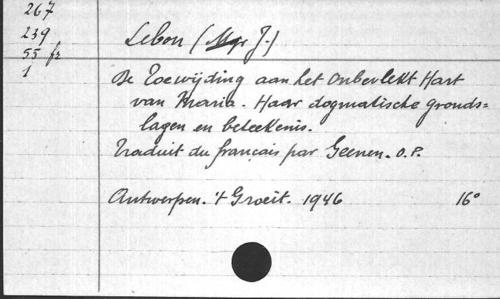 267
239
55 fr
1
Lebon (Mgr J.)
De Toewijding aan het Onbevlekt Hart
van Maria. Haar dogmatische gronds=
lagen en beteekenis.
Traduit du français par Geenen. O.P.
Antwerpen. 't Groeit. 1946 16°